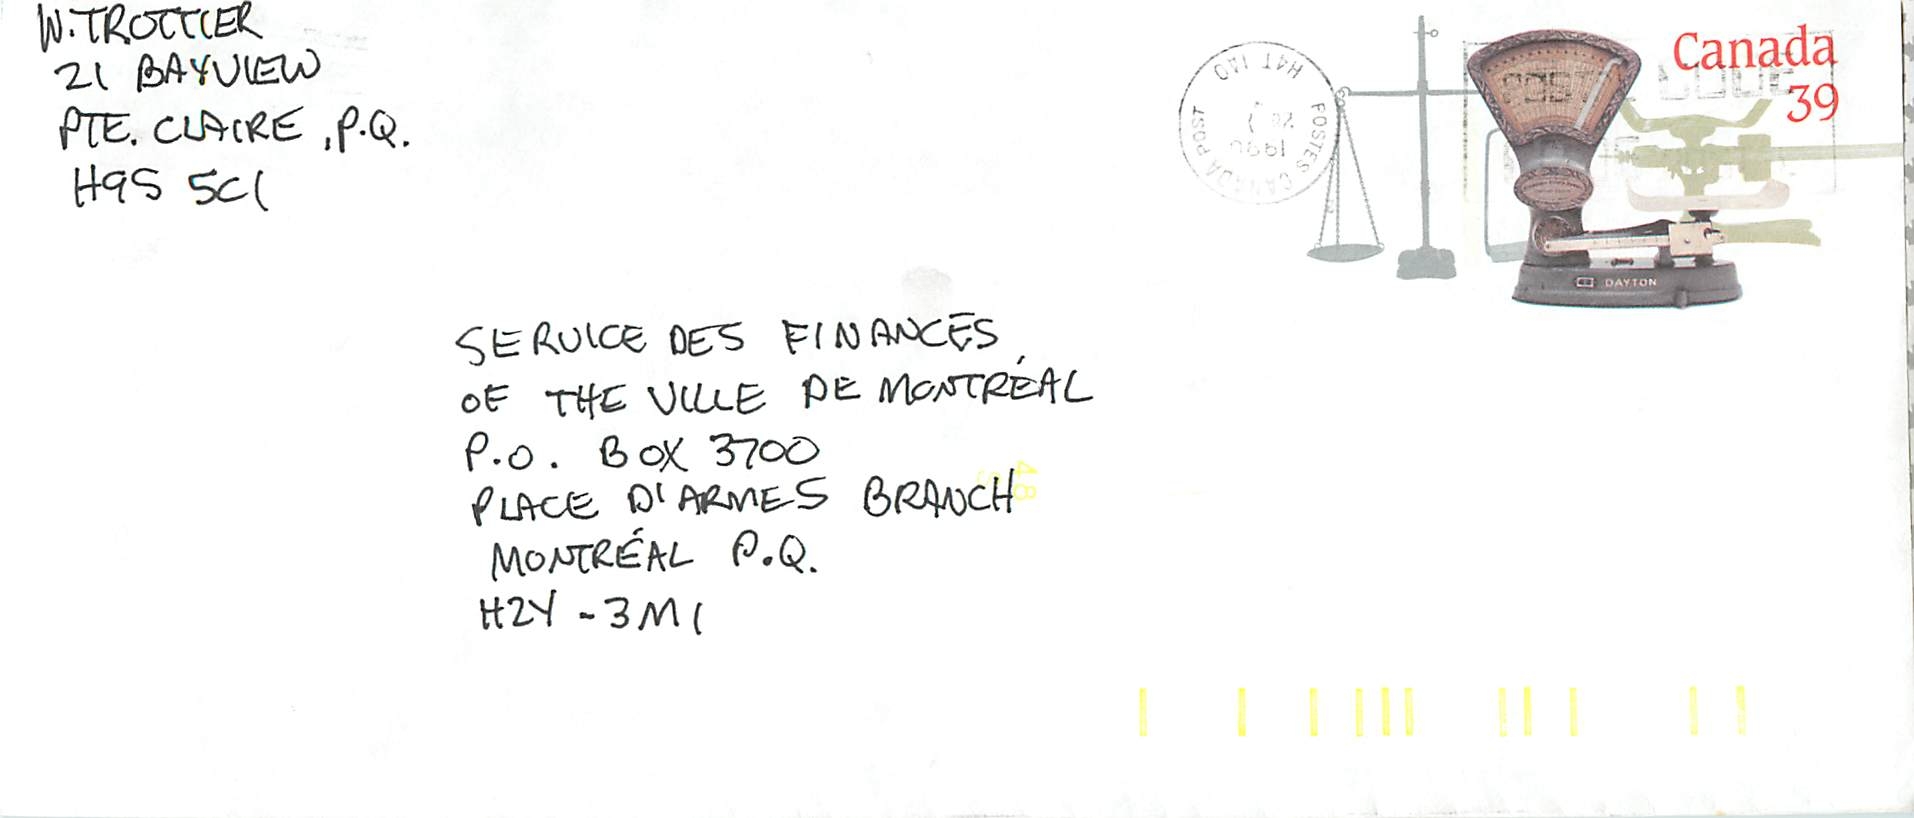 W. TROTTIER
21 BAYVIEW
PTE. CLAIRE, P.Q.
H9S 5C1
Canada
39
POSTES CANADA POST
H4T 1A0
1990
DAYTON
SERVICE DES FINANCES
OF THE VILLE DE MONTRÉAL
P.O. BOX 3700
PLACE D'ARMES BRANCH
MONTRÉAL P.Q.
H2Y - 3M1
48